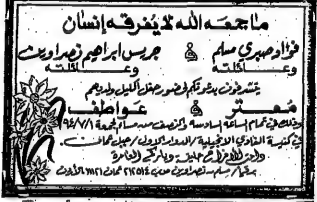 ما جمعه الله لا يفرقه إنسان
فؤاد صبري مسلم & جريس ابراهيم زهراوين
وعائلته وعائلته
يتشرفون بدعوتكم لحضور حفل اكليل ولديهم
معتز & عواطف
وذلك في تمام الساعة السادسة والنصف من مساء الجمعة ٩٤/٧/١
في كنيسة الفادي الانجيلية/الدوار الاول/جبل عمان.
عمان ١١١٢١ الأردن